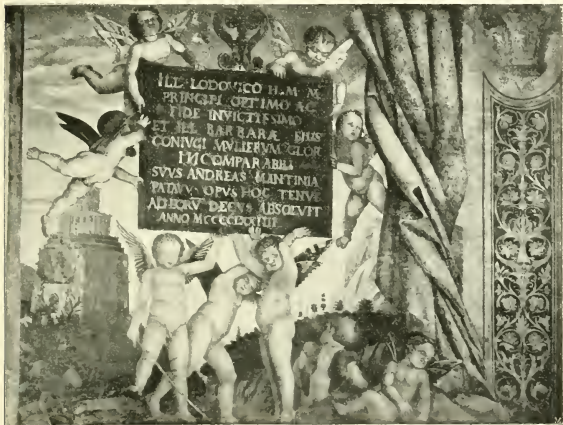 ILL. LODOVICO II.M.M.
PRINCIPI OPTIMO AC
FIDE INVICTISSIMO
ET ILL. BARBARAE EJUS
CONIVGI MVLIERVM GLOR.
INCOMPARABILI
SVVS ANDREAS MANTINIA
PATAVVS OPVS HOC TENVE
AD EORV DECVS ABSOLVIT
ANNO MCCCCLXXIIII